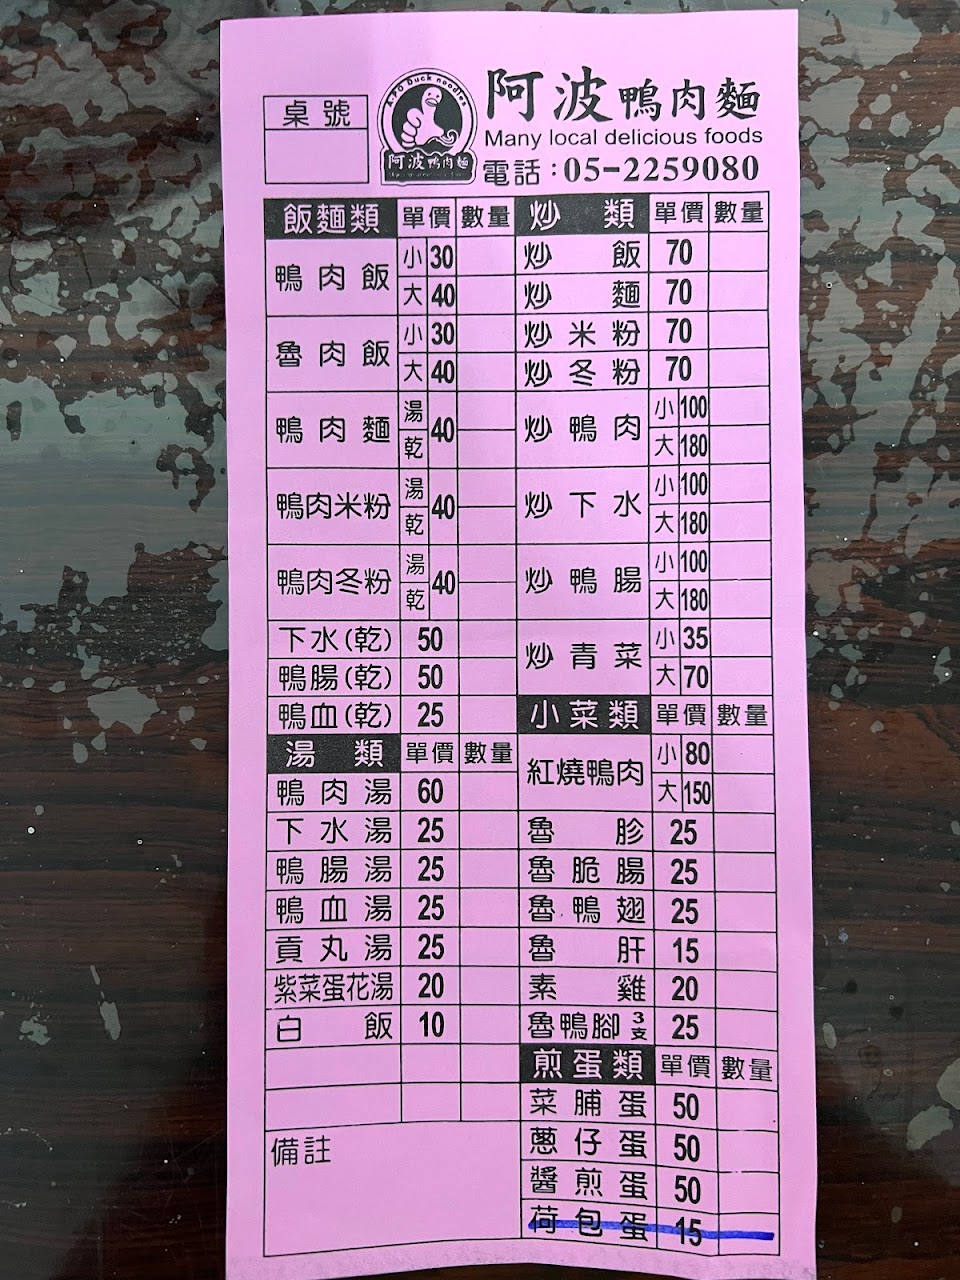 桌號
A-PO Duck noodles
阿波鴨肉麵
阿波鴨肉麵
Many local delicious foods
電話:05-2259080
飯麵類 單價 數量
鴨肉飯 小 30
大 40
魯肉飯 小 30
大 40
鴨肉麵 湯 乾 40
鴨肉米粉 湯 乾 40
鴨肉冬粉 湯 乾 40
下水(乾) 50
鴨腸(乾) 50
鴨血(乾) 25
湯類 單價 數量
鴨肉湯 60
下水湯 25
鴨腸湯 25
鴨血湯 25
貢丸湯 25
紫菜蛋花湯 20
白飯 10
備註
炒類 單價 數量
炒飯 70
炒麵 70
炒米粉 70
炒冬粉 70
炒鴨肉 小 100
大 180
炒下水 小 100
大 180
炒鴨腸 小 100
大 180
炒青菜 小 35
大 70
小菜類 單價 數量
紅燒鴨肉 小 80
大 150
魯胗 25
魯脆腸 25
魯鴨翅 25
魯肝 15
素雞 20
魯鴨腳 3支 25
煎蛋類 單價 數量
菜脯蛋 50
蔥仔蛋 50
醬煎蛋 50
荷包蛋 15